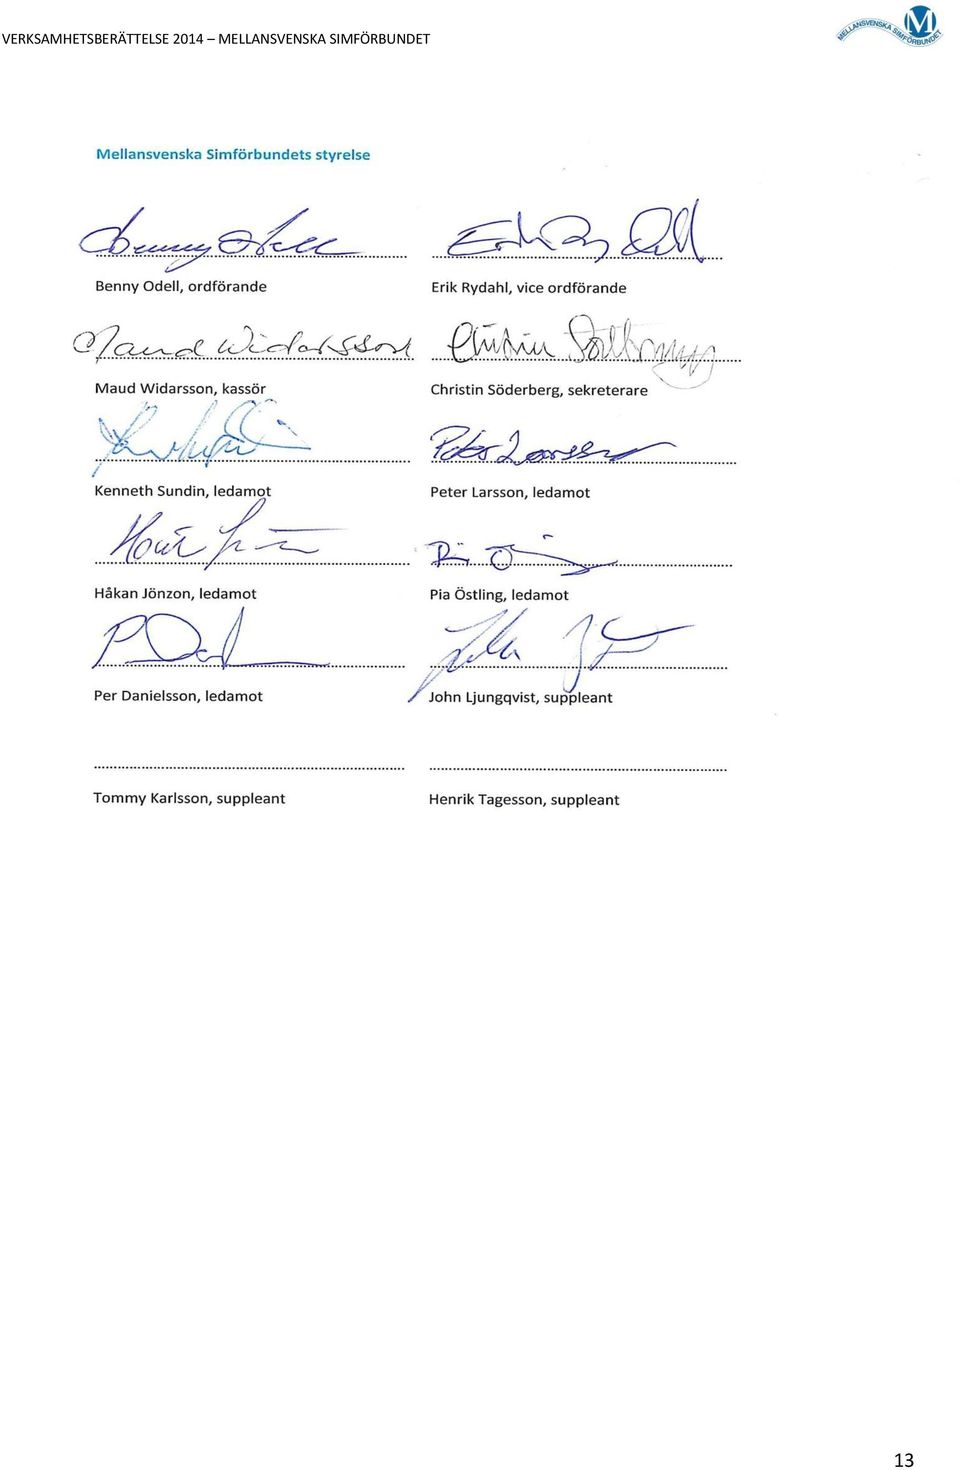 VERKSAMHETSBERÄTTELSE 2014 – MELLANSVENSKA SIMFÖRBUNDET
MELLANSVENSKA SIMFÖRBUNDET
M
Mellansvenska Simförbundets styrelse
Benny Odell
Benny Odell, ordförande
Erik Rydahl, vice ordförande
Maud Widarsson
Maud Widarsson, kassör
Christin
Christin Söderberg, sekreterare
Kenneth Sundin, ledamot
Peter Larsson
Peter Larsson, ledamot
Håkan Jönzon, ledamot
Pia Östling, ledamot
Per Danielsson, ledamot
John Ljungqvist, suppleant
Tommy Karlsson, suppleant
Henrik Tagesson, suppleant
13